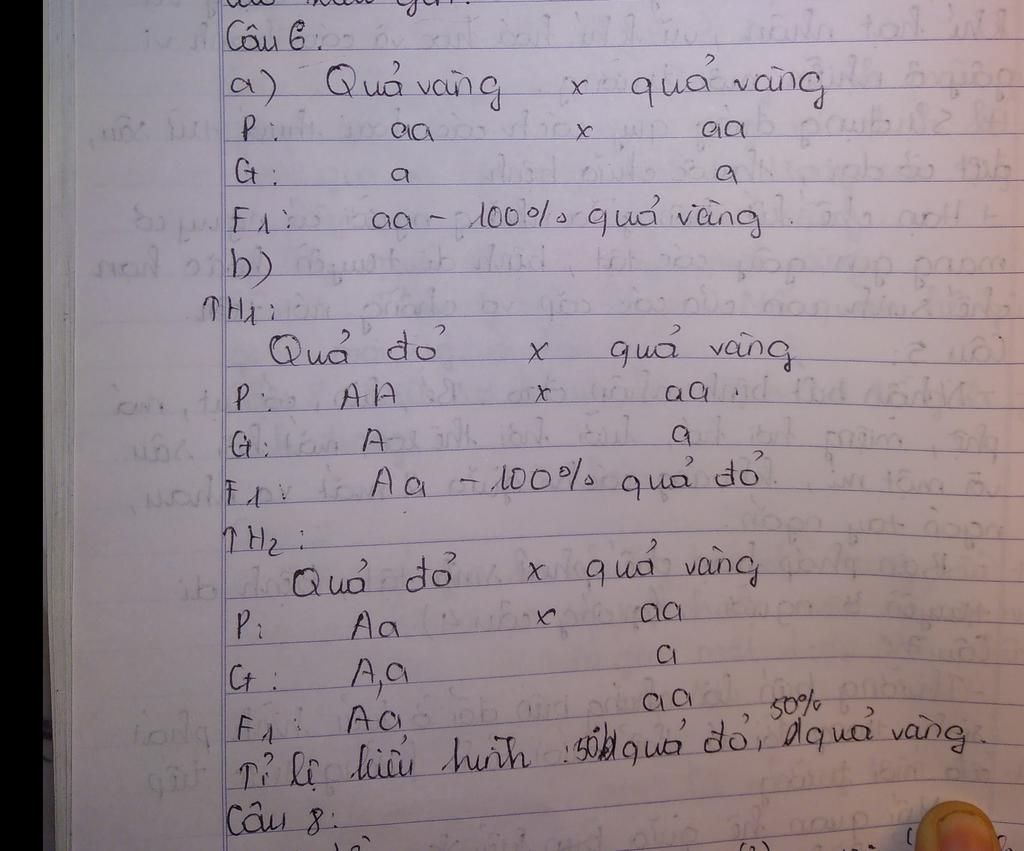 Câu 6:
a) Quả vàng x quả vàng
P: aa x aa
G: a a
F1: aa - 100% quả vàng.
b)
TH1:
Quả đỏ x quả vàng
P: AA x aa.
G: A a
F1: Aa - 100% quả đỏ
TH2:
Quả đỏ x quả vàng
P: Aa x aa
G: A,a a
F1: Aa aa
Tỉ lệ kiểu hình: 50% quả đỏ, 50% quả vàng.
Câu 8: